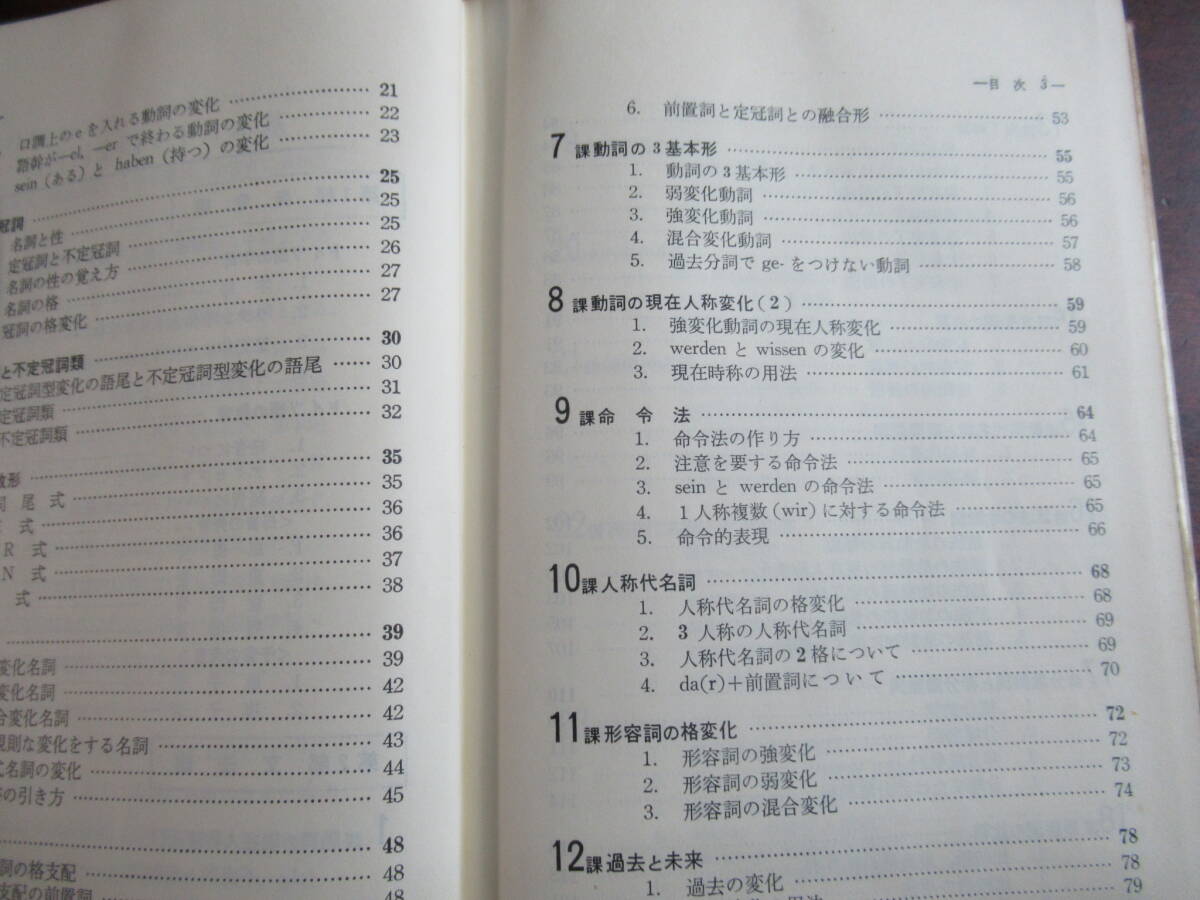 口調上のeを入れる動詞の変化 21
語幹が—el, —er で終わる動詞の変化 22
sein（ある）と haben（持つ）の変化 23
冠詞 25
名詞と性 25
定冠詞と不定冠詞 25
名詞の性の覚え方 26
名詞の格 27
冠詞の格変化 27
と不定冠詞類 30
定冠詞型変化の語尾と不定冠詞型変化の語尾 30
定冠詞類 31
不定冠詞類 32
数形 35
尾 式 35
式 36
R 式 36
N 式 37
式 38
39
変化名詞 39
変化名詞 42
合変化名詞 42
規則な変化をする名詞 43
式名詞の変化 44
の引き方 45
48
詞の格支配 48
支配の前置詞 48
—目 次 3—
6. 前置詞と定冠詞との融合形 53
7課動詞の3基本形 55
1. 動詞の3基本形 55
2. 弱変化動詞 56
3. 強変化動詞 56
4. 混合変化動詞 57
5. 過去分詞で ge- をつけない動詞 58
8課動詞の現在人称変化(2) 59
1. 強変化動詞の現在人称変化 59
2. werden と wissen の変化 60
3. 現在時称の用法 61
9課命 令 法 64
1. 命令法の作り方 64
2. 注意を要する命令法 65
3. sein と werden の命令法 65
4. 1人称複数(wir)に対する命令法 65
5. 命令的表現 66
10課人称代名詞 68
1. 人称代名詞の格変化 68
2. 3人称の人称代名詞 69
3. 人称代名詞の2格について 69
4. da(r)+前置詞について 70
11課形容詞の格変化 72
1. 形容詞の強変化 72
2. 形容詞の弱変化 73
3. 形容詞の混合変化 74
12課過去と未来 78
1. 過去の変化 78
79